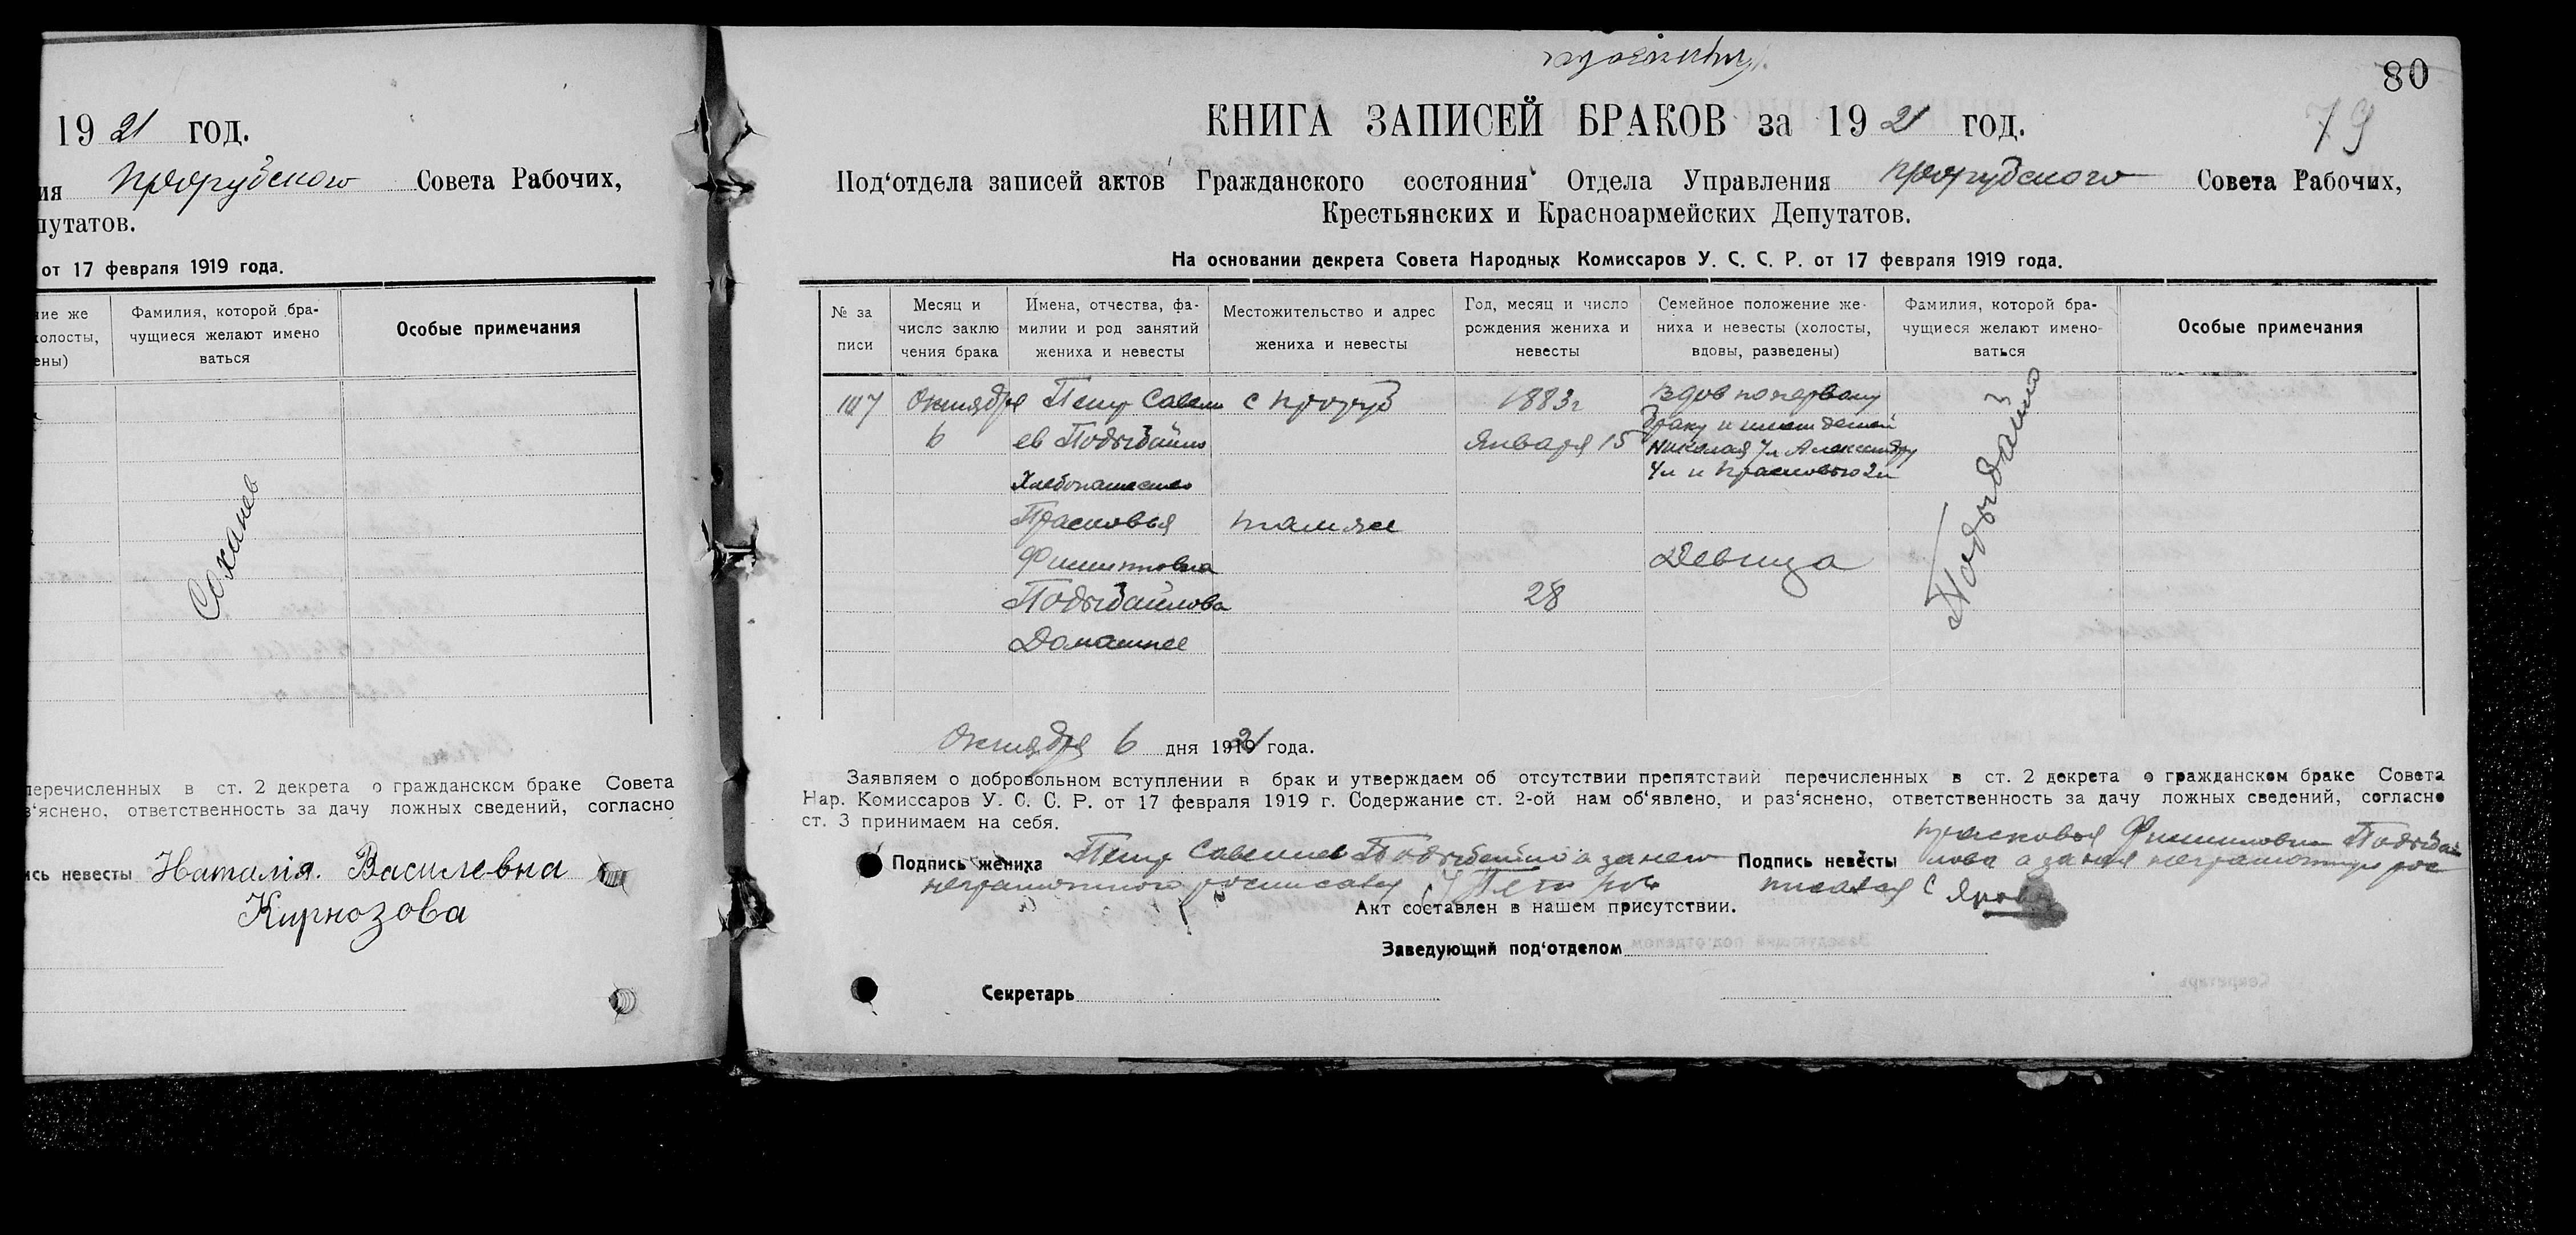 1921 год.
ия Прорубского Совета Рабочих,
путатов.
от 17 февраля 1919 года.
ние же
холосты,
ены)
Фамилия, которой бра-
чущиеся желают имено
ваться
Особые примечания
Соханев
перечисленных в ст. 2 декрета о гражданском браке Совета
з'яснено, ответственность за дачу ложных сведений, согласно
ись невесты Наталія. Василевна
Кирнозова
80
79
КНИГА ЗАПИСЕЙ БРАКОВ за 1921 год.
Под'отдела записей актов Гражданского состояния Отдела Управления Прорубского Совета Рабочих,
Крестьянских и Красноармейских Депутатов.
На основании декрета Совета Народных Комиссаров У. С. С. Р. от 17 февраля 1919 года.
№ за
писи
Месяц и
число заклю
чения брака
Имена, отчества, фа-
милии и род занятий
жениха и невесты
Местожительство и адрес
жениха и невесты
Год, месяц и число
рождения жениха и
невесты
Семейное положение же-
ниха и невесты (холосты,
вдовы, разведены)
Фамилия, которой бра-
чущиеся желают имено-
ваться
Особые примечания
107
Октября
6
Петр Савели
ев Подыбайло
Хлебопашество
с Проруб
1883г
Января 15
вдов по первому
браку и имеет детей
Николая 7л Александру
4л и Прасковью 2л
Подыбайло
Прасковья
Филипповна
Подыбайлова
Домашнее
тамже
28
Девица
Октября 6 дня 1921 года.
Заявляем о добровольном вступлении в брак и утверждаем об отсутствии препятствий перечисленных в ст. 2 декрета о гражданском браке Совета
Нар. Комиссаров У. С. С. Р. от 17 февраля 1919 г. Содержание ст. 2-ой нам об'явлено, и раз'яснено, ответственность за дачу ложных сведений, согласно
ст. 3 принимаем на себя.
Подпись жениха Петр Савелиев Подыбайло а за него
неграмотного росписался
Подпись невесты Прасковья Филипповна Подыбай
лова а за нея неграмотную рос
писался С
Акт составлен в нашем присутствии.
Заведующий под'отделом
Секретарь